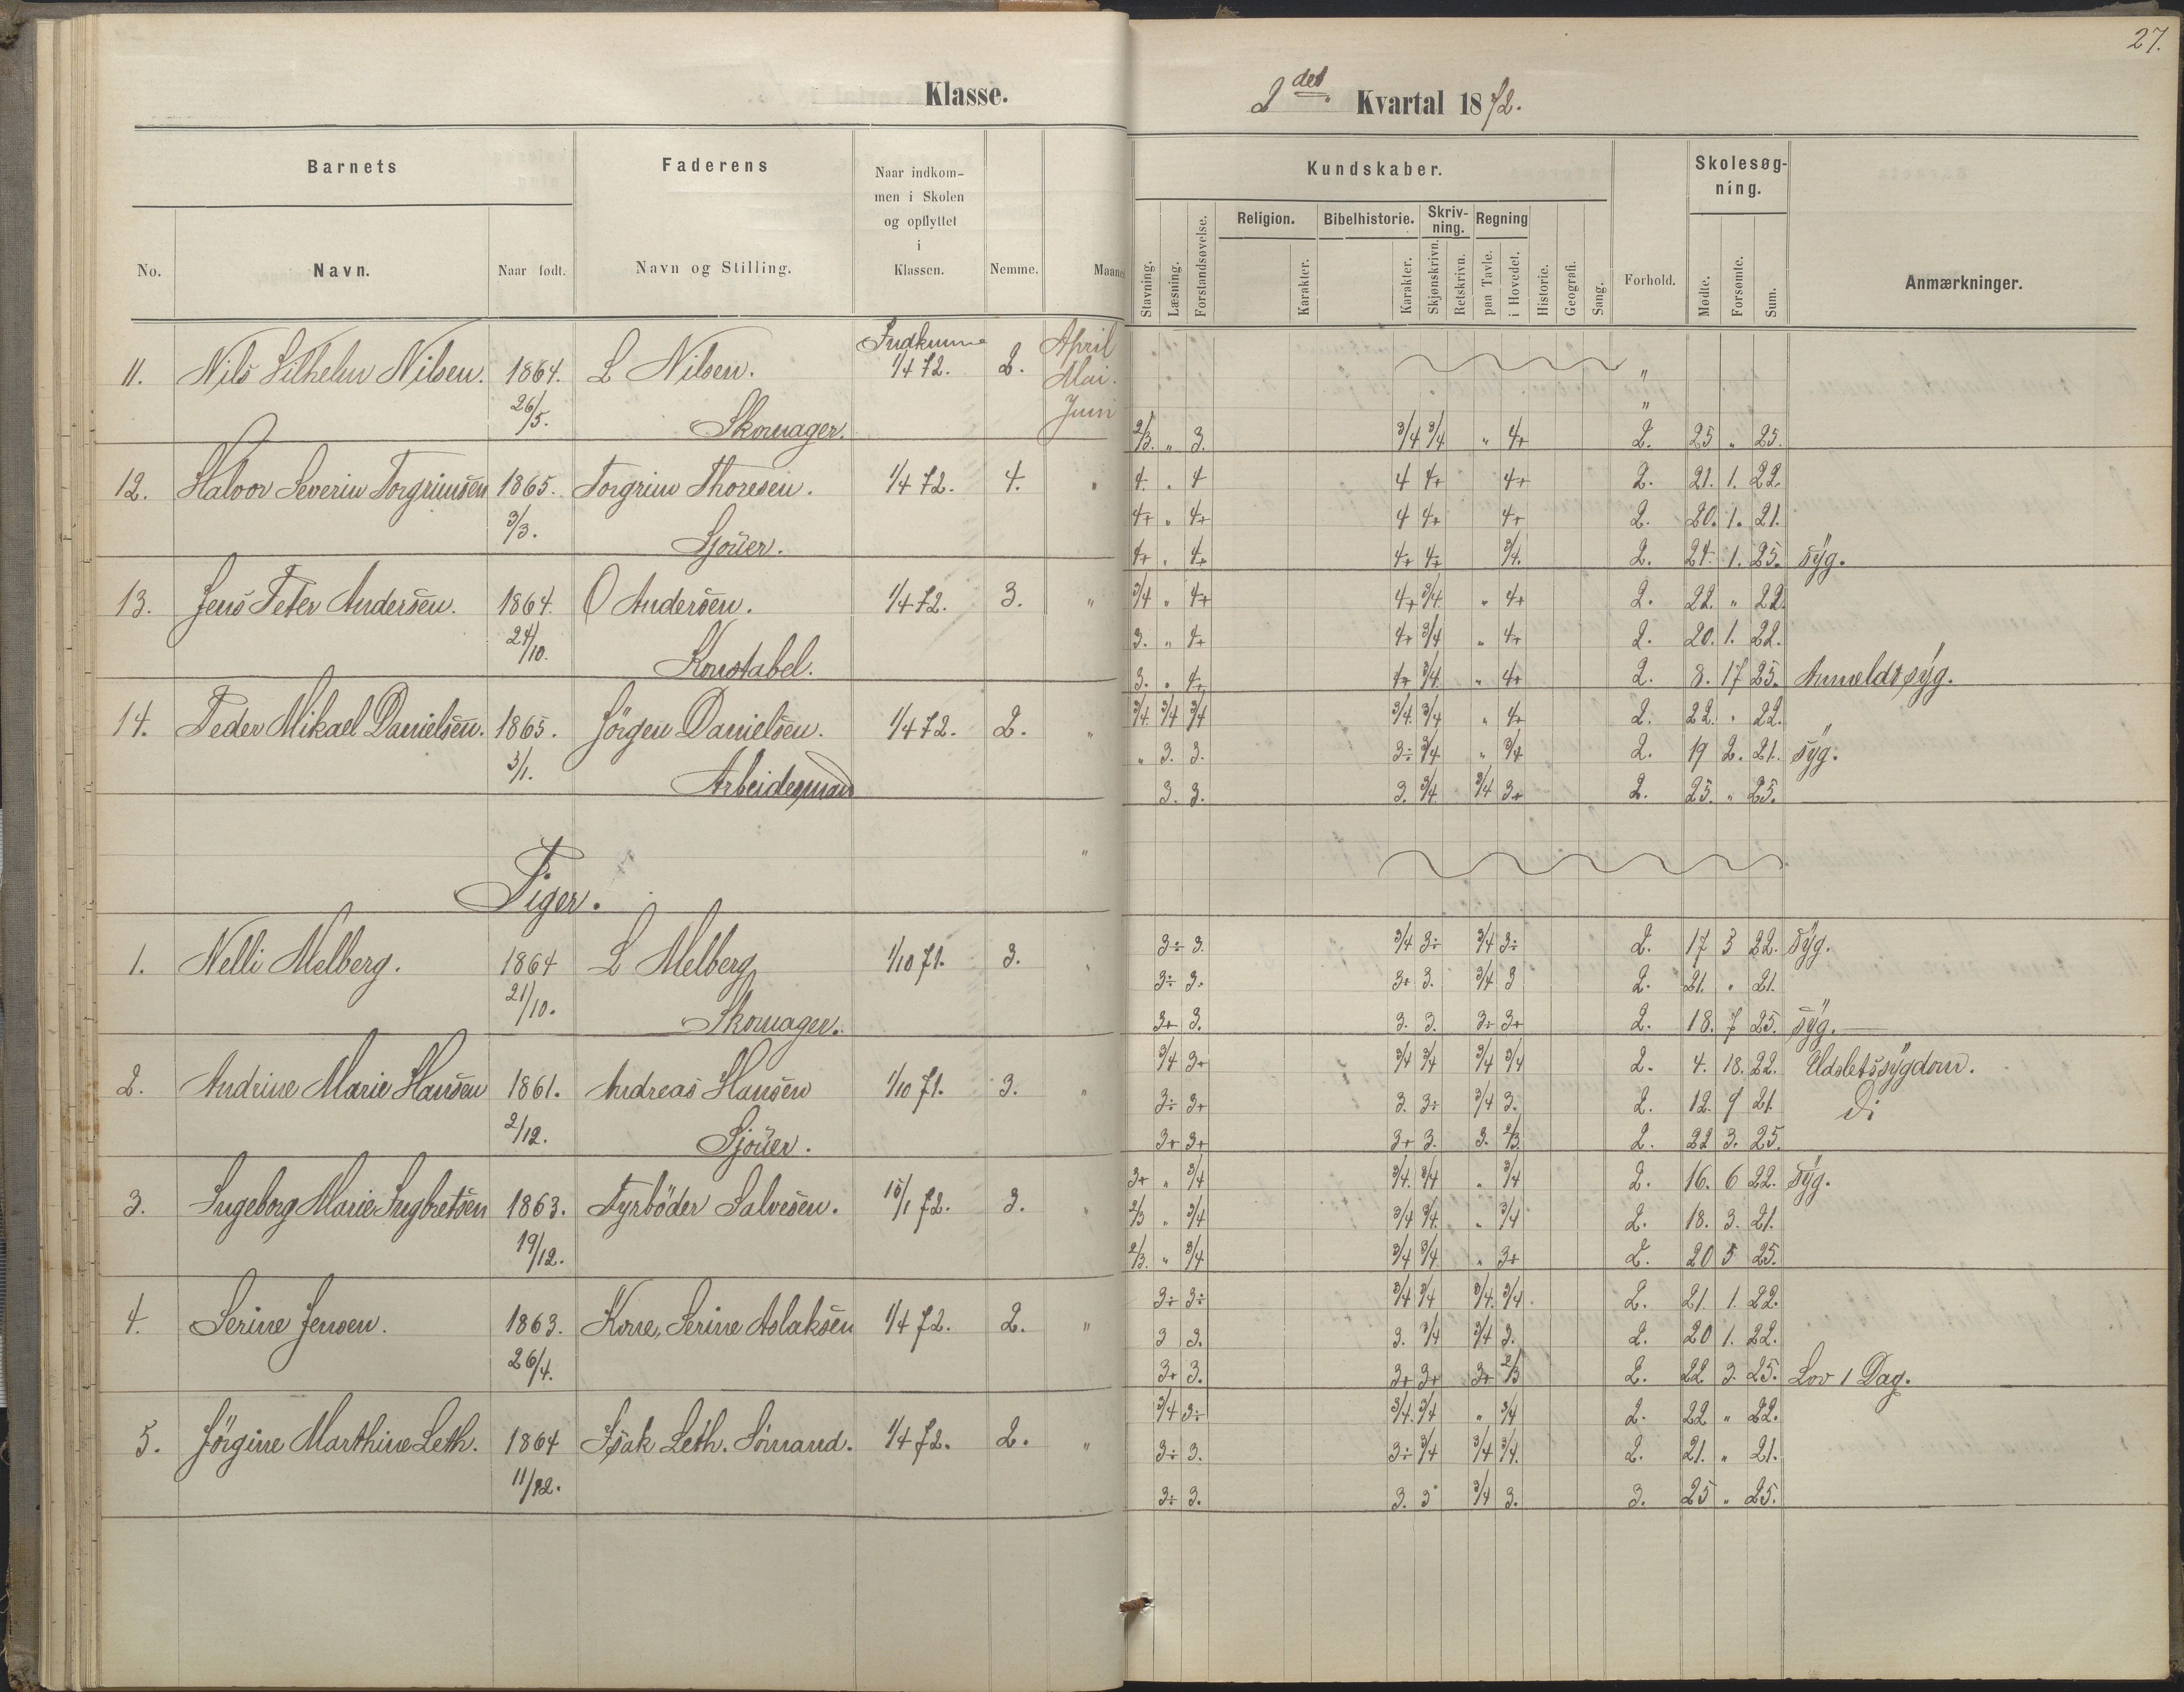 27.
Klasse.
2det Kvartal 1872.
Barnets
Faderens
Naar indkom-
men i Skolen
og opflyttet
i
Klassen.
No.
Navn.
Naar født.
Navn og Stilling.
Nemme.
Maaned
Kundskaber.
Skolesøg-
ning.
Stavning.
Læsning.
Forstandsøvelse.
Religion.
Bibelhistorie.
Skriv-
ning.
Regning
Karakter.
Karakter.
Skjønskrivn.
Retskrivn.
paa Tavle.
i Hovedet.
Historie.
Geografi.
Sang.
Forhold.
Mødte.
Forsømte.
Sum.
Anmærkninger.
11. Nils Vilhelm Nilsen. 1864. L Nilsen. 1/4 72. 2. April
Mai. "
26/5. Juni "
Skomager. 2/3. " 3. 3/4 3/4 " 4+ 2. 25 " 25.
12. Halvor Severin Torgrimsen 1865. Torgrim Thoresen. 1/4 72. 4. " 4. " 4 4 4+ 4+ 2. 21. 1. 22.
3/3. 4+ " 4+ 4 4+ 4+ 2. 20. 1. 21.
Sjöuer. 4+ " 4+ 4+ 4+ 3/4. 2. 24. 1. 25. syg.
13. Jens Peter Andersen. 1864. O Andersen. 1/4 72. 3. " 3/4 " 4+ 4+ 3/4 " 4+ 2. 22. " 22.
24/10. 3. " 4+ 4+ 3/4 " 4+ 2. 20. 1. 22.
Konstabel. 3. " 4+ 4+ 3/4 " 4+ 2. 8. 17 25. Anmeldt syg.
14. Peder Mikael Danielsen. 1865. Jörgen Danielsen. 1/4 72. 2. " 3/4 3/4 3/4 3/4 3/4 " 4+ 2. 22. " 22.
3/1. " 3. 3. 3÷ 3/4 " 3/4 2. 19 2. 21. syg.
Arbeidsmand 3. 3. 3. 3/4 3/4 3+ 2. 25. " 25.
"
Piger.
1. Nelli Melberg. 1864 L Melberg 1/10 71. 3. " 3÷ 3. 3/4 3÷ 3/4 3÷ 2. 17 3 22. syg.
21/10. 3÷ 3. 3+ 3. 3/4 3 2. 21. " 21.
Skomager. 3+ 3. 3. 3. 3÷ 3+ 2. 18. 7 25. syg.
2. Andrine Marie Hansen 1861. Andreas Hansen 1/10 71. 3. " 3/4 3+ 3/4 3/4 3/4 3/4 2. 4. 18. 22. Udsletssygdom.
2/12. 3÷ 3+ 3. 3÷ 3/4 3. 2. 12. 9 21. Di
Sjöuer. 3+ 3+ 3+ 3. 3. 2/3. 2. 22 3. 25.
3. Ingeborg Marie Ingbretsen 1863. Fyrböder Salvesen. 15/1 72. 3. " 3+ " 3/4 3/4. 3/4 " 3/4 2. 16. 6 22. syg.
2/3 " 3/4 3/4 3/4. " 3/4 2. 18. 3. 21.
19/12. 2/3. " 3/4 3/4 3/4 " 3+ 2. 20 5 25.
4. Serine Jensen. 1863. Kone, Serine Aslaksen 1/4 72. 2. " 3÷ 3÷ 3/4 3/4 3/4. 3/4. 2. 21. 1. 22.
3 3. 3. 3/4 3/4 3. 2. 20 1. 22.
26/4. 3+ 3. 3+ 3+ 3+ 2/3 2. 22 3. 25. Lov 1 Dag.
5. Jörgine Marthine Leth. 1864 Isak Leth. Sömand. 1/4 72. 2. " 3/4 3÷ 3/4. 3/4 " 3/4 2. 22 " 22.
3÷ 3. 3÷ 3/4 3/4 3/4. 2. 21. " 21.
11/12. 3÷ 3. 3. 3 3/4 3. 3. 25 " 25.